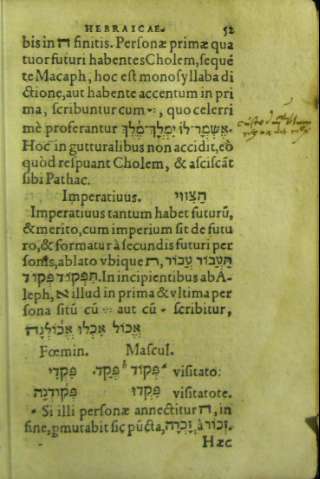 HEBRAICAE. 52
bis in ה finitis. Personæ primæ qua
tuor futuri habentes Cholem, sequẽ
te Macaph, hoc est monosyllaba di
ctione, aut habente accentum in pri
ma, scribuntur cum , quo celerri
mè proferantur אֶשְׁמָר־לוֹ יִמְלָךְ־מֶלֶךְ.
Hoc in gutturalibus non accidit, eò
quòd respuant Cholem, & asciscãt
sibi Pathac.
Imperatiuus. הַצִוּוּי
Imperatiuus tantum habet futurũ,
& merito, cum imperium sit de futu
ro, & formatur à secundis futuri per
sonis, ablato vbique ת, תַּעֲבוֹר עֲבוֹר,
תִּפְקוֹד פְּקוֹד. In incipientibus ab A-
leph, א illud in prima & vltima per
sona sitũ cũ aut cũ scribitur,
אֱכוֹל אִכְלוּ אֱכוֹלְנָה
Fœmin. Mascul.
פִּקְדִי פְּקֹד. פְּקוֹד visitato:
פְּקוֹדְנָה פִּקְדוּ visitatote.
Si illi personæ annectitur ה, in
fine, ꝑmutabit sic pũcta, זָכְרָה à זְכוֹר,
Hæc